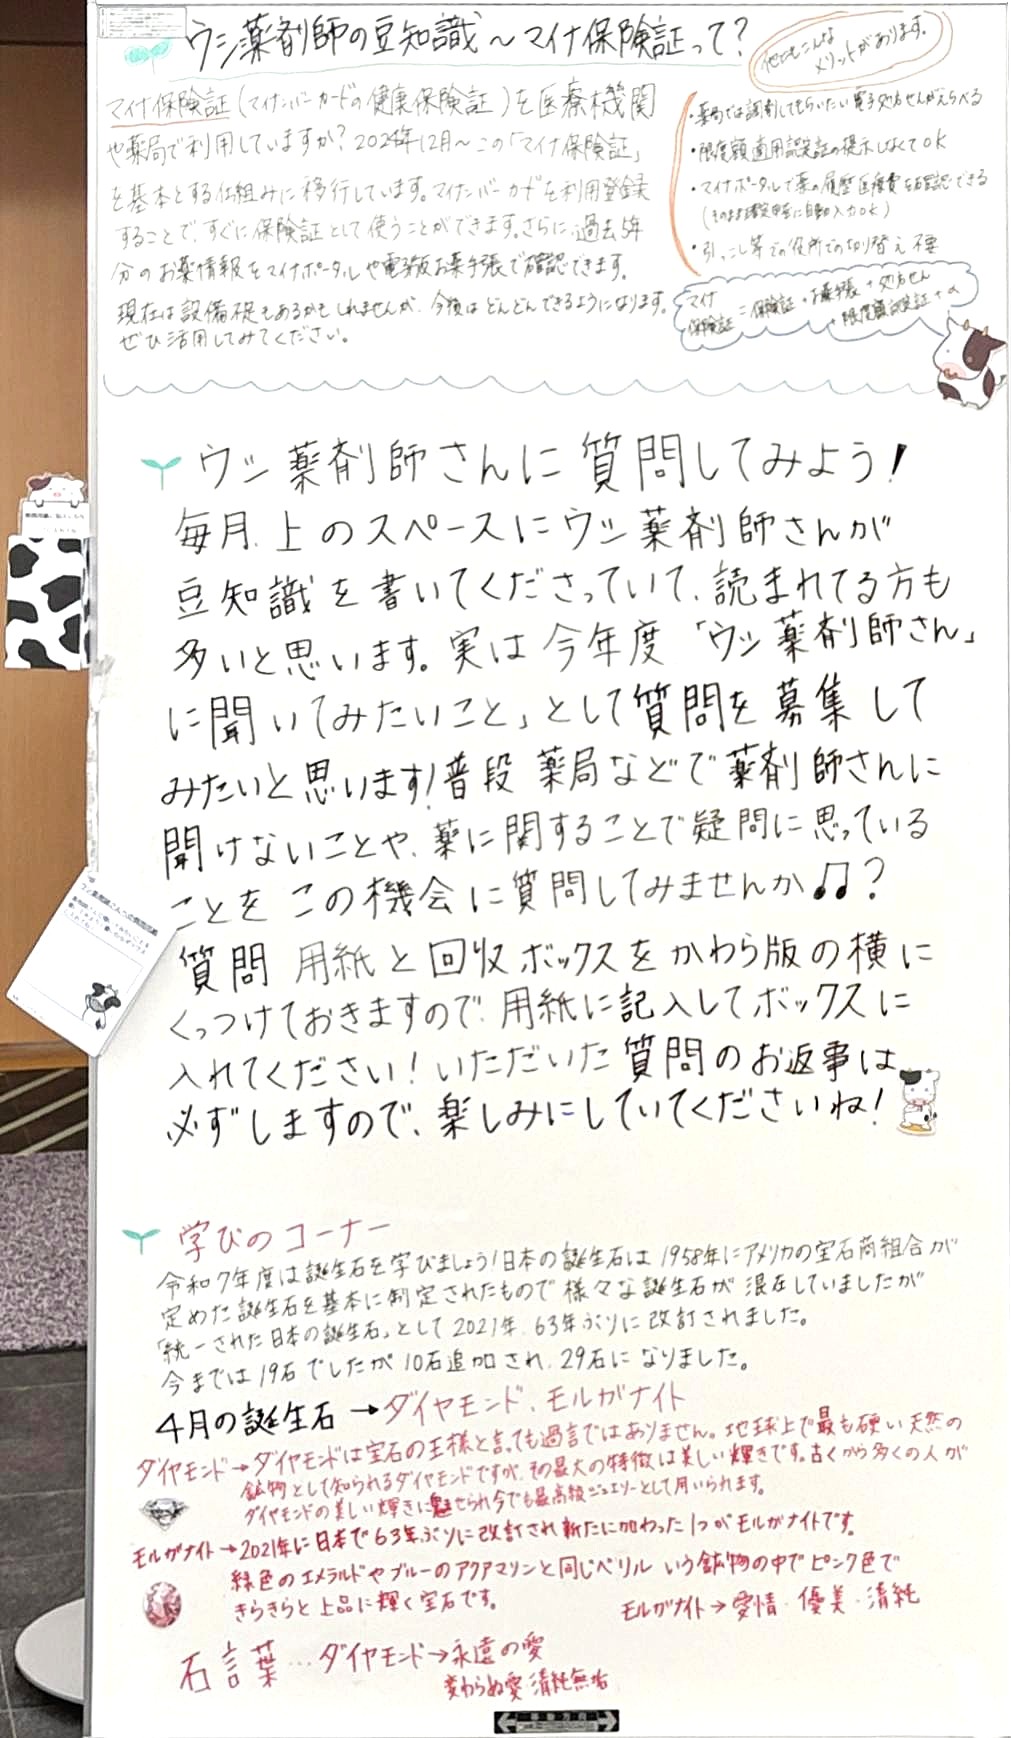 ウシ薬剤師の豆知識～マイナ保険証って？
マイナ保険証(マイナンバーカードの健康保険証)を医療機関
や薬局で利用していますか？2024年12月～この「マイナ保険証」
を基本とする仕組みに移行しています。マイナンバーカードを利用登録
することで、すぐに保険証として使うことができます。さらに、過去5年
分のお薬情報をマイナポータルや電子版お薬手帳で確認できます。
現在は設備不足もあるかもしれませんが、今後はどんどんできるようになります。
ぜひ活用してみてください。
他にもこんな
メリットがあります。
・薬局では調剤してもらいたい電子処方せんがえらべる
・限度額適用認定証の提示しなくてOK
・マイナポータルで薬の履歴医療費を確認できる
(そのまま確定申告に自動入力OK)
・引っこし等での役所での切り替え不要
マイナ
保険証=保険証+お薬手帳+処方せん
+限度額認定証+α
ウシ薬剤師さんに質問してみよう！
毎月、上のスペースにウシ薬剤師さんが
豆知識を書いてくださっていて、読まれてる方も
多いと思います。実は今年度「ウシ薬剤師さん」
に聞いてみたいこと」として質問を募集して
みたいと思います！普段薬局などで薬剤師さんに
聞けないことや、薬に関することで疑問に思っている
ことをこの機会に質問してみませんか♫？
質問用紙と回収ボックスをかわら版の横に
くっつけておきますので、用紙に記入してボックスに
入れてください！いただいた質問のお返事は
必ずしますので、楽しみにしていてくださいね！
学びのコーナー
令和7年度は誕生石を学びましょう！日本の誕生石は1958年にアメリカの宝石商組合が
定めた誕生石を基本に制定されたもので様々な誕生石が混在していましたが
「統一された日本の誕生石」として2021年、63年ぶりに改訂されました。
今までは19石でしたが10石追加され、29石になりました。
4月の誕生石→ダイヤモンド、モルガナイト
ダイヤモンド→ダイヤモンドは宝石の王様と言っても過言ではありません。地球上で最も硬い天然の
鉱物として知られるダイヤモンドですが、その最大の特徴は美しい輝きです。古くから多くの人が
ダイヤモンドの美しい輝きに魅せられ今でも最高級ジュエリーとして用いられます。
モルガナイト→2021年に日本で63年ぶりに改訂され新たに加わった1つがモルガナイトです。
緑色のエメラルドやブルーのアクアマリンと同じベリルいう鉱物の中でピンク色で
きらきらと上品に輝く宝石です。
モルガナイト→愛情・優美・清純
石言葉…ダイヤモンド→永遠の愛
変わらぬ愛・清純無垢
移動方向